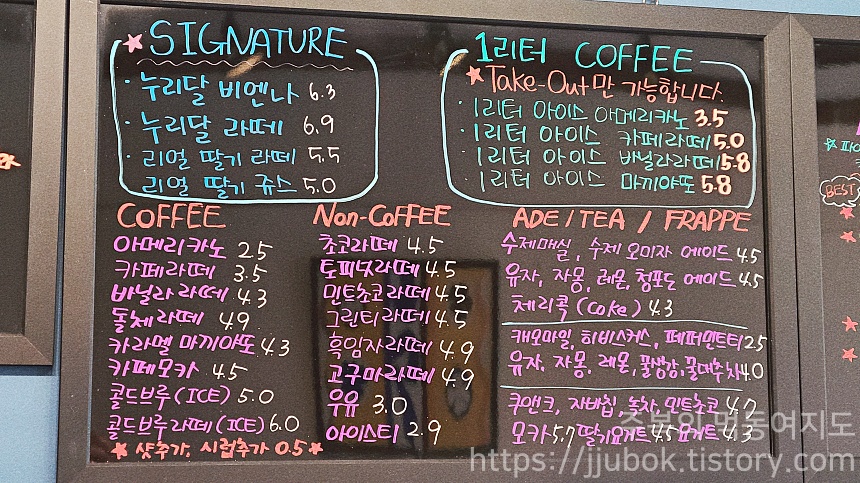 SIGNATURE
· 누리달 비엔나 6.3
· 누리달 라떼 6.9
· 리얼 딸기 라떼 5.5
리얼 딸기 쥬스 5.0
1리터 COFFEE
★Take-Out만 가능합니다.
· 1리터 아이스 아메리카노 3.5
· 1리터 아이스 카페라떼 5.0
· 1리터 아이스 바닐라라떼 5.8
· 1리터 아이스 마끼아또 5.8
COFFEE
아메리카노 2.5
카페라떼 3.5
바닐라라떼 4.3
돌체라떼 4.9
카라멜 마끼아또 4.3
카페모카 4.5
콜드브루(ICE) 5.0
콜드브루라떼(ICE) 6.0
★ 샷추가, 시럽추가 0.5★
Non-CoFFEE
초코라떼 4.5
토피넛라떼 4.5
민트초코라떼 4.5
그린티라떼 4.5
흑임자라떼 4.9
고구마라떼 4.9
우유 3.0
아이스티 2.9
ADE / TEA / FRAPPE
수제매실, 수제 오미자 에이드 4.5
유자, 자몽, 레몬, 청포도 에이드 4.5
체리콕 (Coke) 4.3
캐모마일, 히비스커스, 페퍼민트티 2.5
유자, 자몽, 레몬, 꿀생강, 꿀대추차 4.0
쿠앤크, 자바칩, 녹차, 민트초코 4.7
모카 5.7 딸기요거트 4.5 요거트 4.3
BEST
https://jjubok.tistory.com